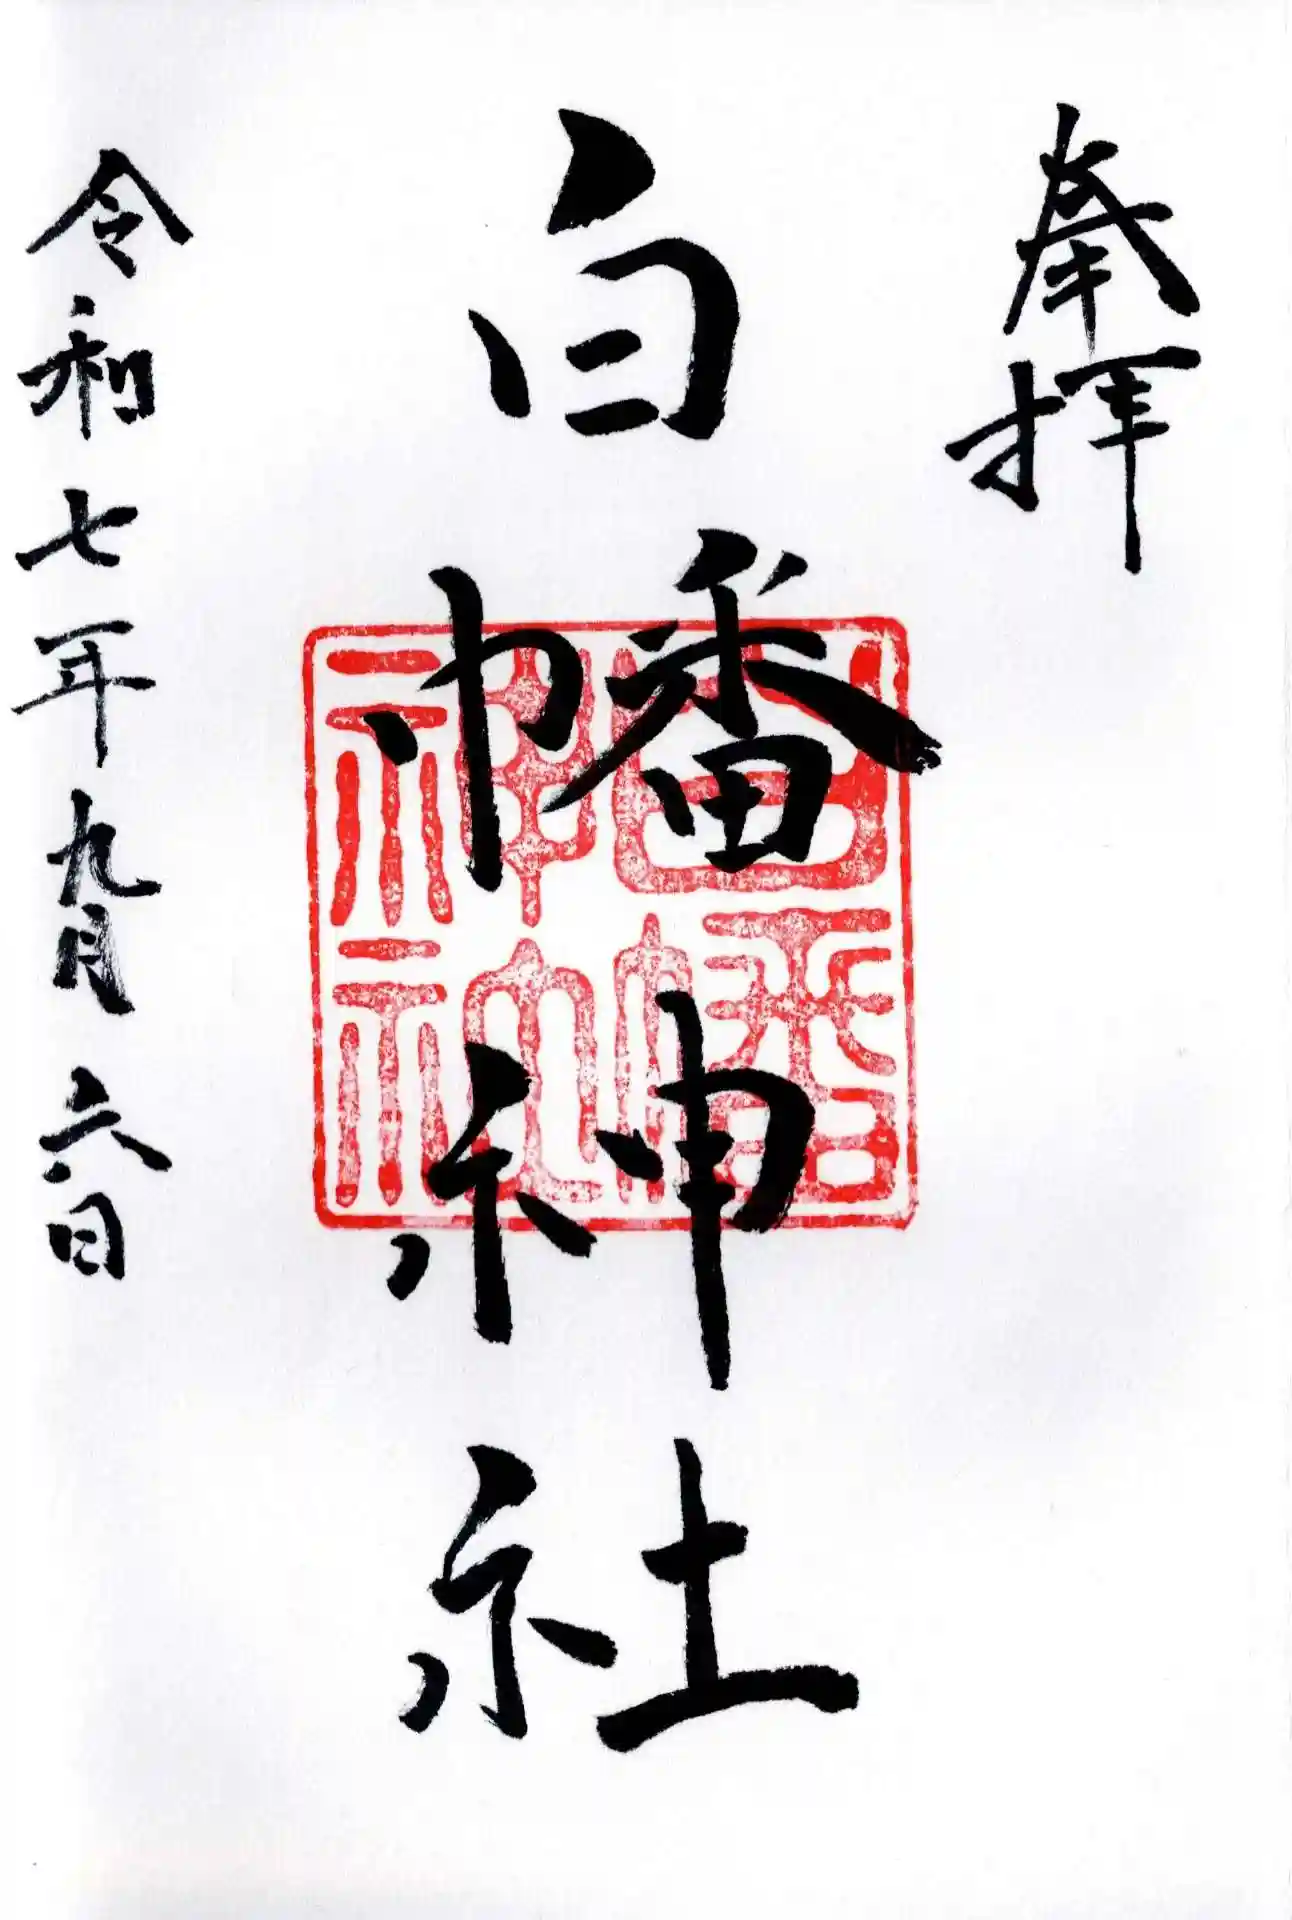 奉拝
白幡神社
白幡神社
令和七年九月六日